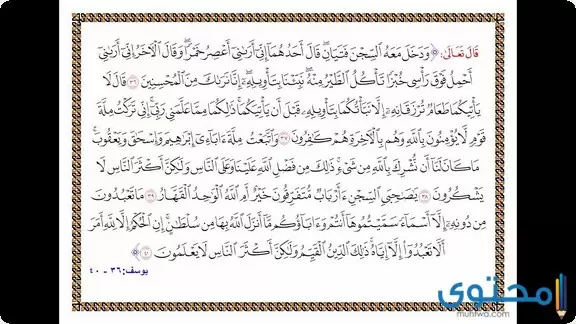 قَالَ تَعَالَىٰ: ﴿ وَدَخَلَ مَعَهُ السِّجْنَ فَتَيَانِ ۖ قَالَ أَحَدُهُمَا إِنِّي أَرَانِي أَعْصِرُ خَمْرًا ۖ وَقَالَ الْآخَرُ إِنِّي أَرَانِي
أَحْمِلُ فَوْقَ رَأْسِي خُبْزًا تَأْكُلُ الطَّيْرُ مِنْهُ ۖ نَبِّئْنَا بِتَأْوِيلِهِ ۖ إِنَّا نَرَاكَ مِنَ الْمُحْسِنِينَ ٣٦ قَالَ لَا
يَأْتِيكُمَا طَعَامٌ تُرْزَقَانِهِ إِلَّا نَبَّأْتُكُمَا بِتَأْوِيلِهِ قَبْلَ أَنْ يَأْتِيَكُمَا ۚ ذَٰلِكُمَا مِمَّا عَلَّمَنِي رَبِّي ۚ إِنِّي تَرَكْتُ مِلَّةَ
قَوْمٍ لَا يُؤْمِنُونَ بِاللَّهِ وَهُمْ بِالْآخِرَةِ هُمْ كَافِرُونَ ٣٧ وَاتَّبَعْتُ مِلَّةَ آبَائِي إِبْرَاهِيمَ وَإِسْحَاقَ وَيَعْقُوبَ ۚ
مَا كَانَ لَنَا أَنْ نُشْرِكَ بِاللَّهِ مِنْ شَيْءٍ ۚ ذَٰلِكَ مِنْ فَضْلِ اللَّهِ عَلَيْنَا وَعَلَى النَّاسِ وَلَٰكِنَّ أَكْثَرَ النَّاسِ لَا
يَشْكُرُونَ ٣٨ يَا صَاحِبَيِ السِّجْنِ أَأَرْبَابٌ مُتَفَرِّقُونَ خَيْرٌ أَمِ اللَّهُ الْوَاحِدُ الْقَهَّارُ ٣٩ مَا تَعْبُدُونَ
مِنْ دُونِهِ إِلَّا أَسْمَاءً سَمَّيْتُمُوهَا أَنْتُمْ وَآبَاؤُكُمْ مَا أَنْزَلَ اللَّهُ بِهَا مِنْ سُلْطَانٍ ۚ إِنِ الْحُكْمُ إِلَّا لِلَّهِ ۚ أَمَرَ
أَلَّا تَعْبُدُوا إِلَّا إِيَّاهُ ۚ ذَٰلِكَ الدِّينُ الْقَيِّمُ وَلَٰكِنَّ أَكْثَرَ النَّاسِ لَا يَعْلَمُونَ ٤٠ ﴾
يوسف: ٣٦ - ٤٠
محتوى
muhtwa.com